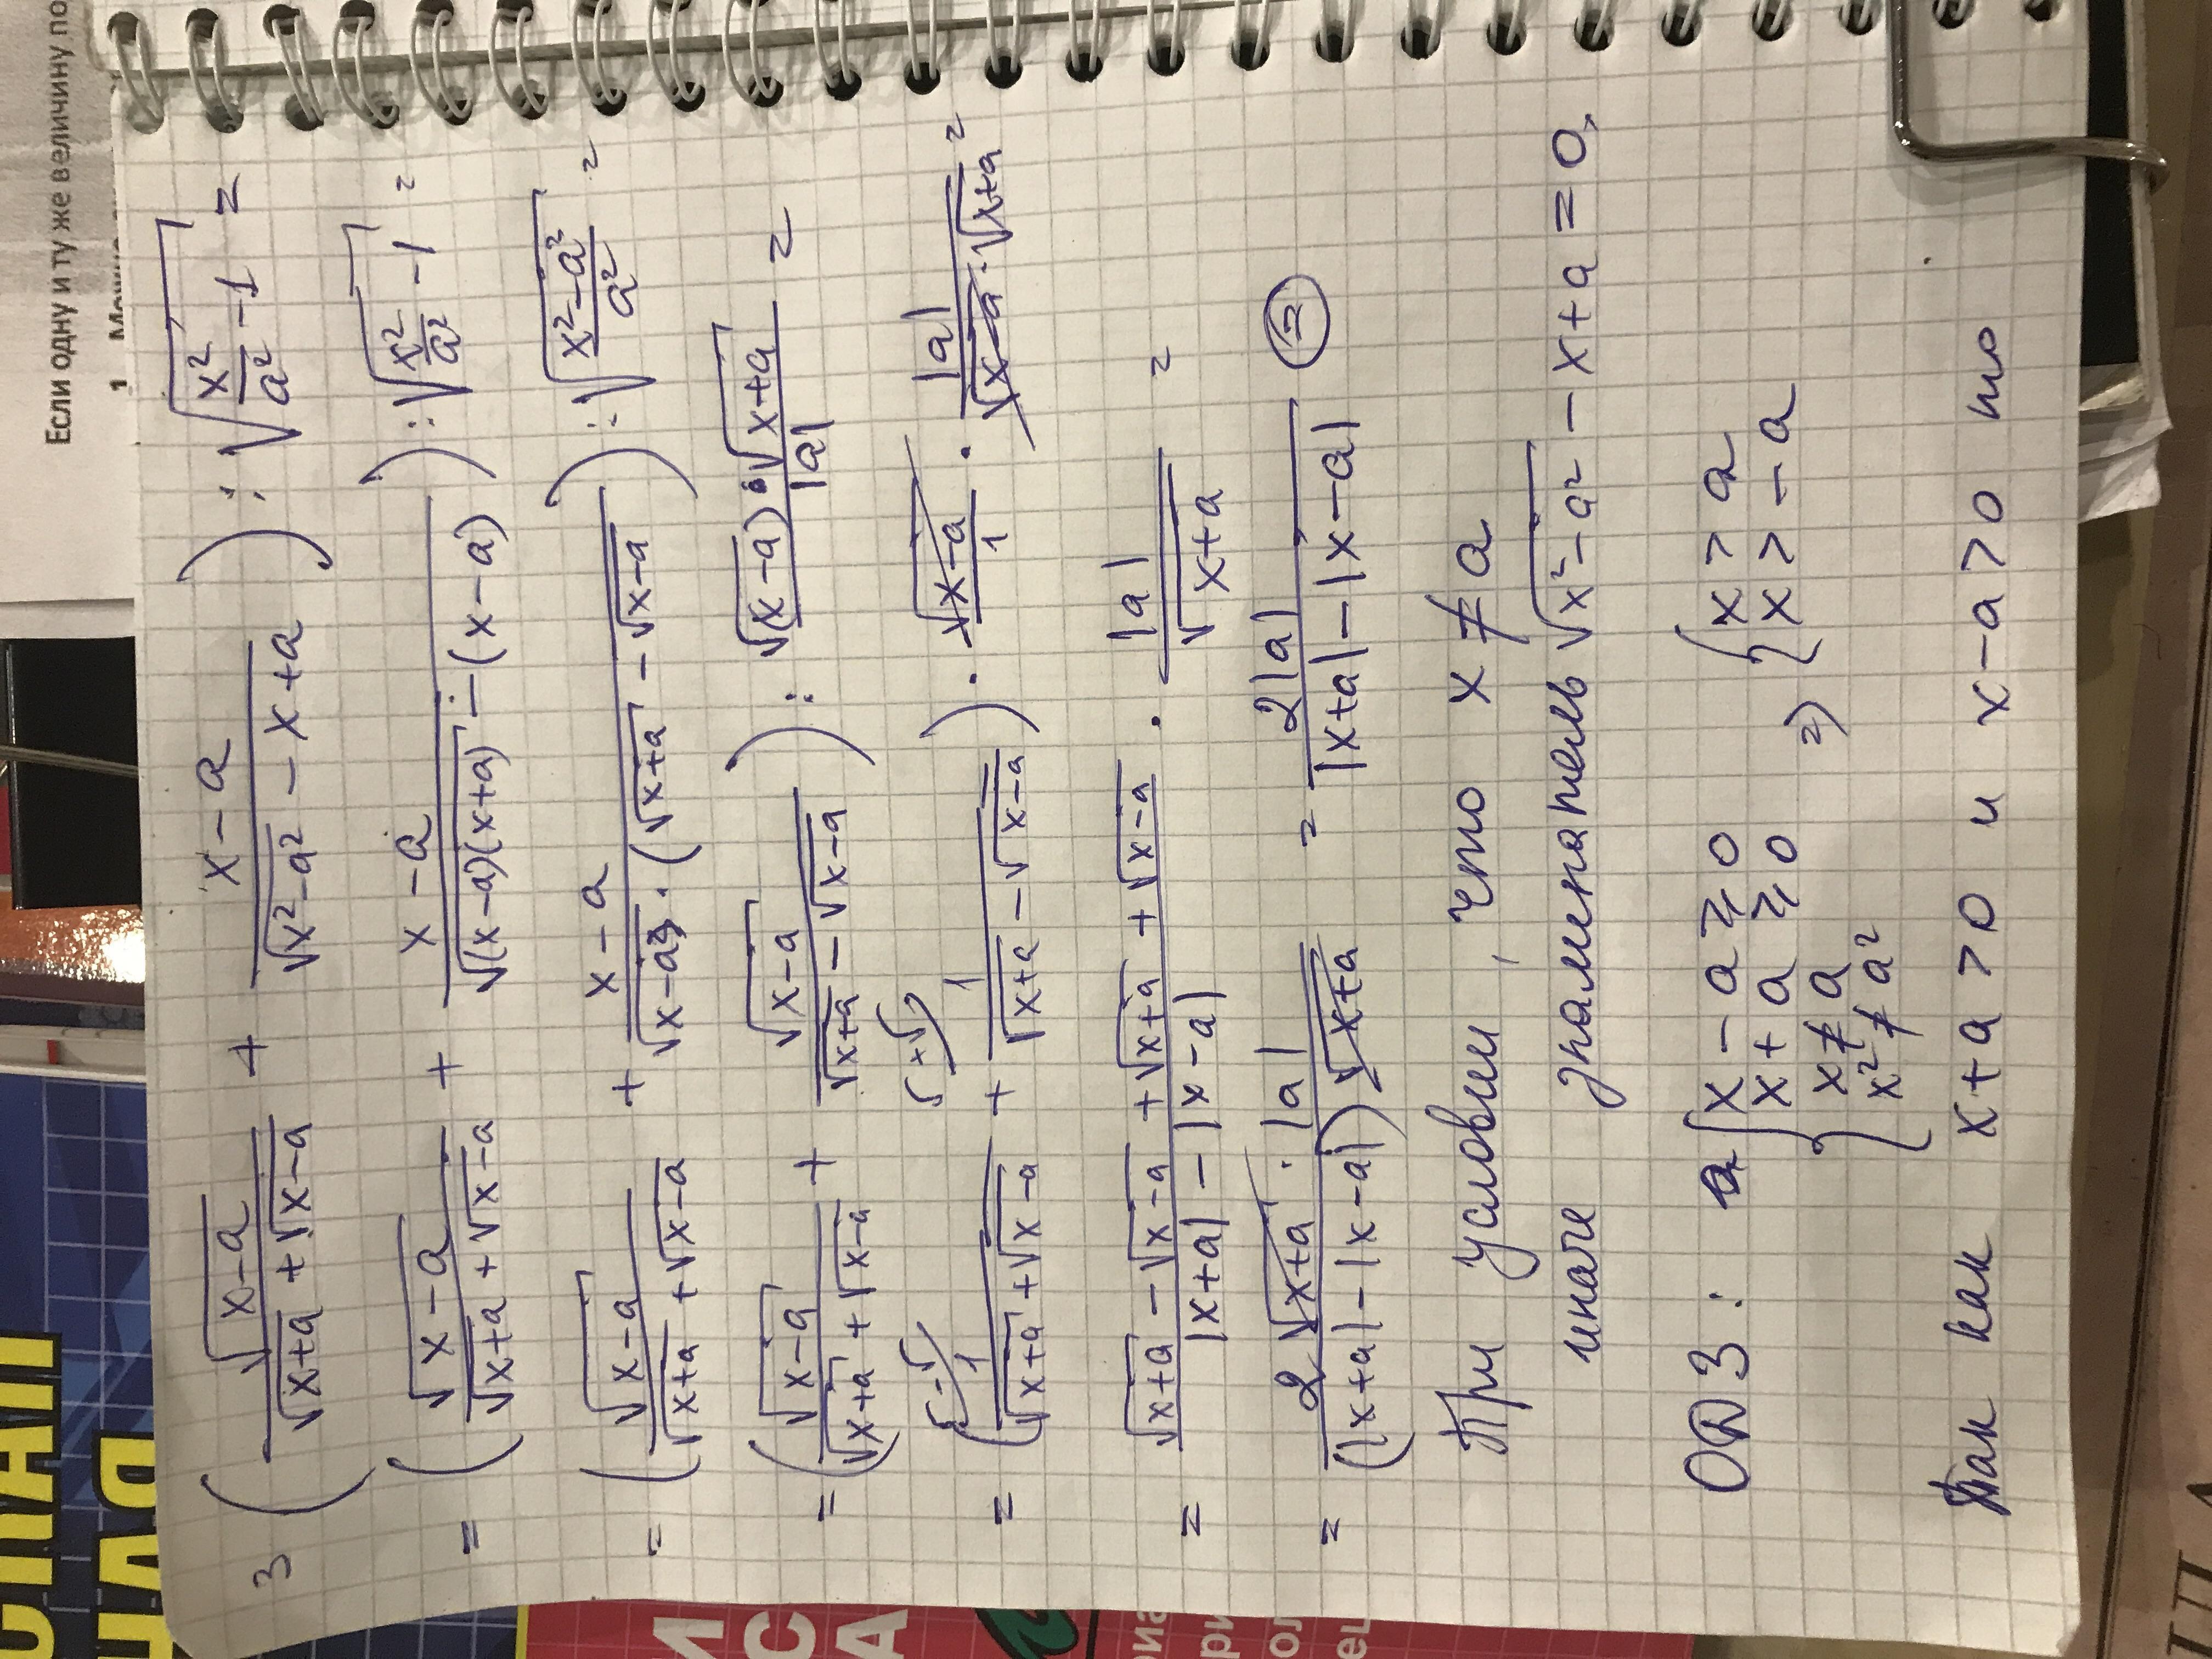 Если одну и ту же величину по
1
3 ( √(x-a) / (√(x+a) + √(x-a)) + (x-a) / (√(x²-a²) - x + a) ) : √(x²/a² - 1) =
= ( √(x-a) / (√(x+a) + √(x-a)) + (x-a) / (√((x-a)(x+a)) - (x-a)) ) : √(x²/a² - 1) =
= ( √(x-a) / (√(x+a) + √(x-a)) + (x-a) / (√(x-a) · (√(x+a) - √(x-a))) ) : √((x²-a²)/a²) =
= ( √(x-a) / (√(x+a) + √(x-a)) + √(x-a) / (√(x+a) - √(x-a)) ) : √(x-a) · √(x+a) / |a| =
√-√ √+√
= ( 1 / (√(x+a) + √(x-a)) + 1 / (√(x+a) - √(x-a)) ) · √(x-a) / 1 · |a| / (√(x-a) · √(x+a)) =
= (√(x+a) - √(x-a) + √(x+a) + √(x-a)) / (|x+a| - |x-a|) · |a| / √(x+a) =
= 2√(x+a) · |a| / ((|x+a| - |x-a|) √(x+a)) = 2|a| / (|x+a| - |x-a|) =
При условии, что x ≠ a
иначе знаменатель √(x²-a²) - x + a = 0,
ОДЗ: { x - a ⩾ 0 { x > a
x + a ⩾ 0 => x > -a
x ≠ a
x² ≠ a²
Так как x + a > 0 и x - a > 0 то